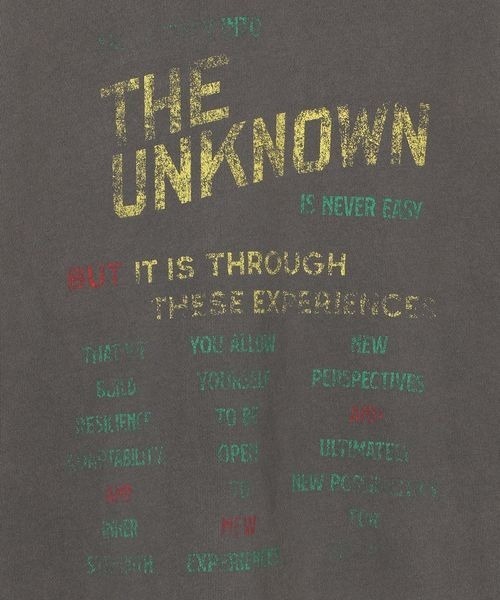 INTO
THE
UNKNOWN
IS NEVER EASY
BUT IT IS THROUGH
THESE EXPERIENCES
THAT WE
BUILD
RESILIENCE
ADAPTABILITY
AND
INNER
STRENGTH
YOU ALLOW
YOURSELF
TO BE
OPEN
TO
NEW
EXPERIENCES
NEW
PERSPECTIVES
AND
ULTIMATELY
NEW POSSIBILITIES
FOR